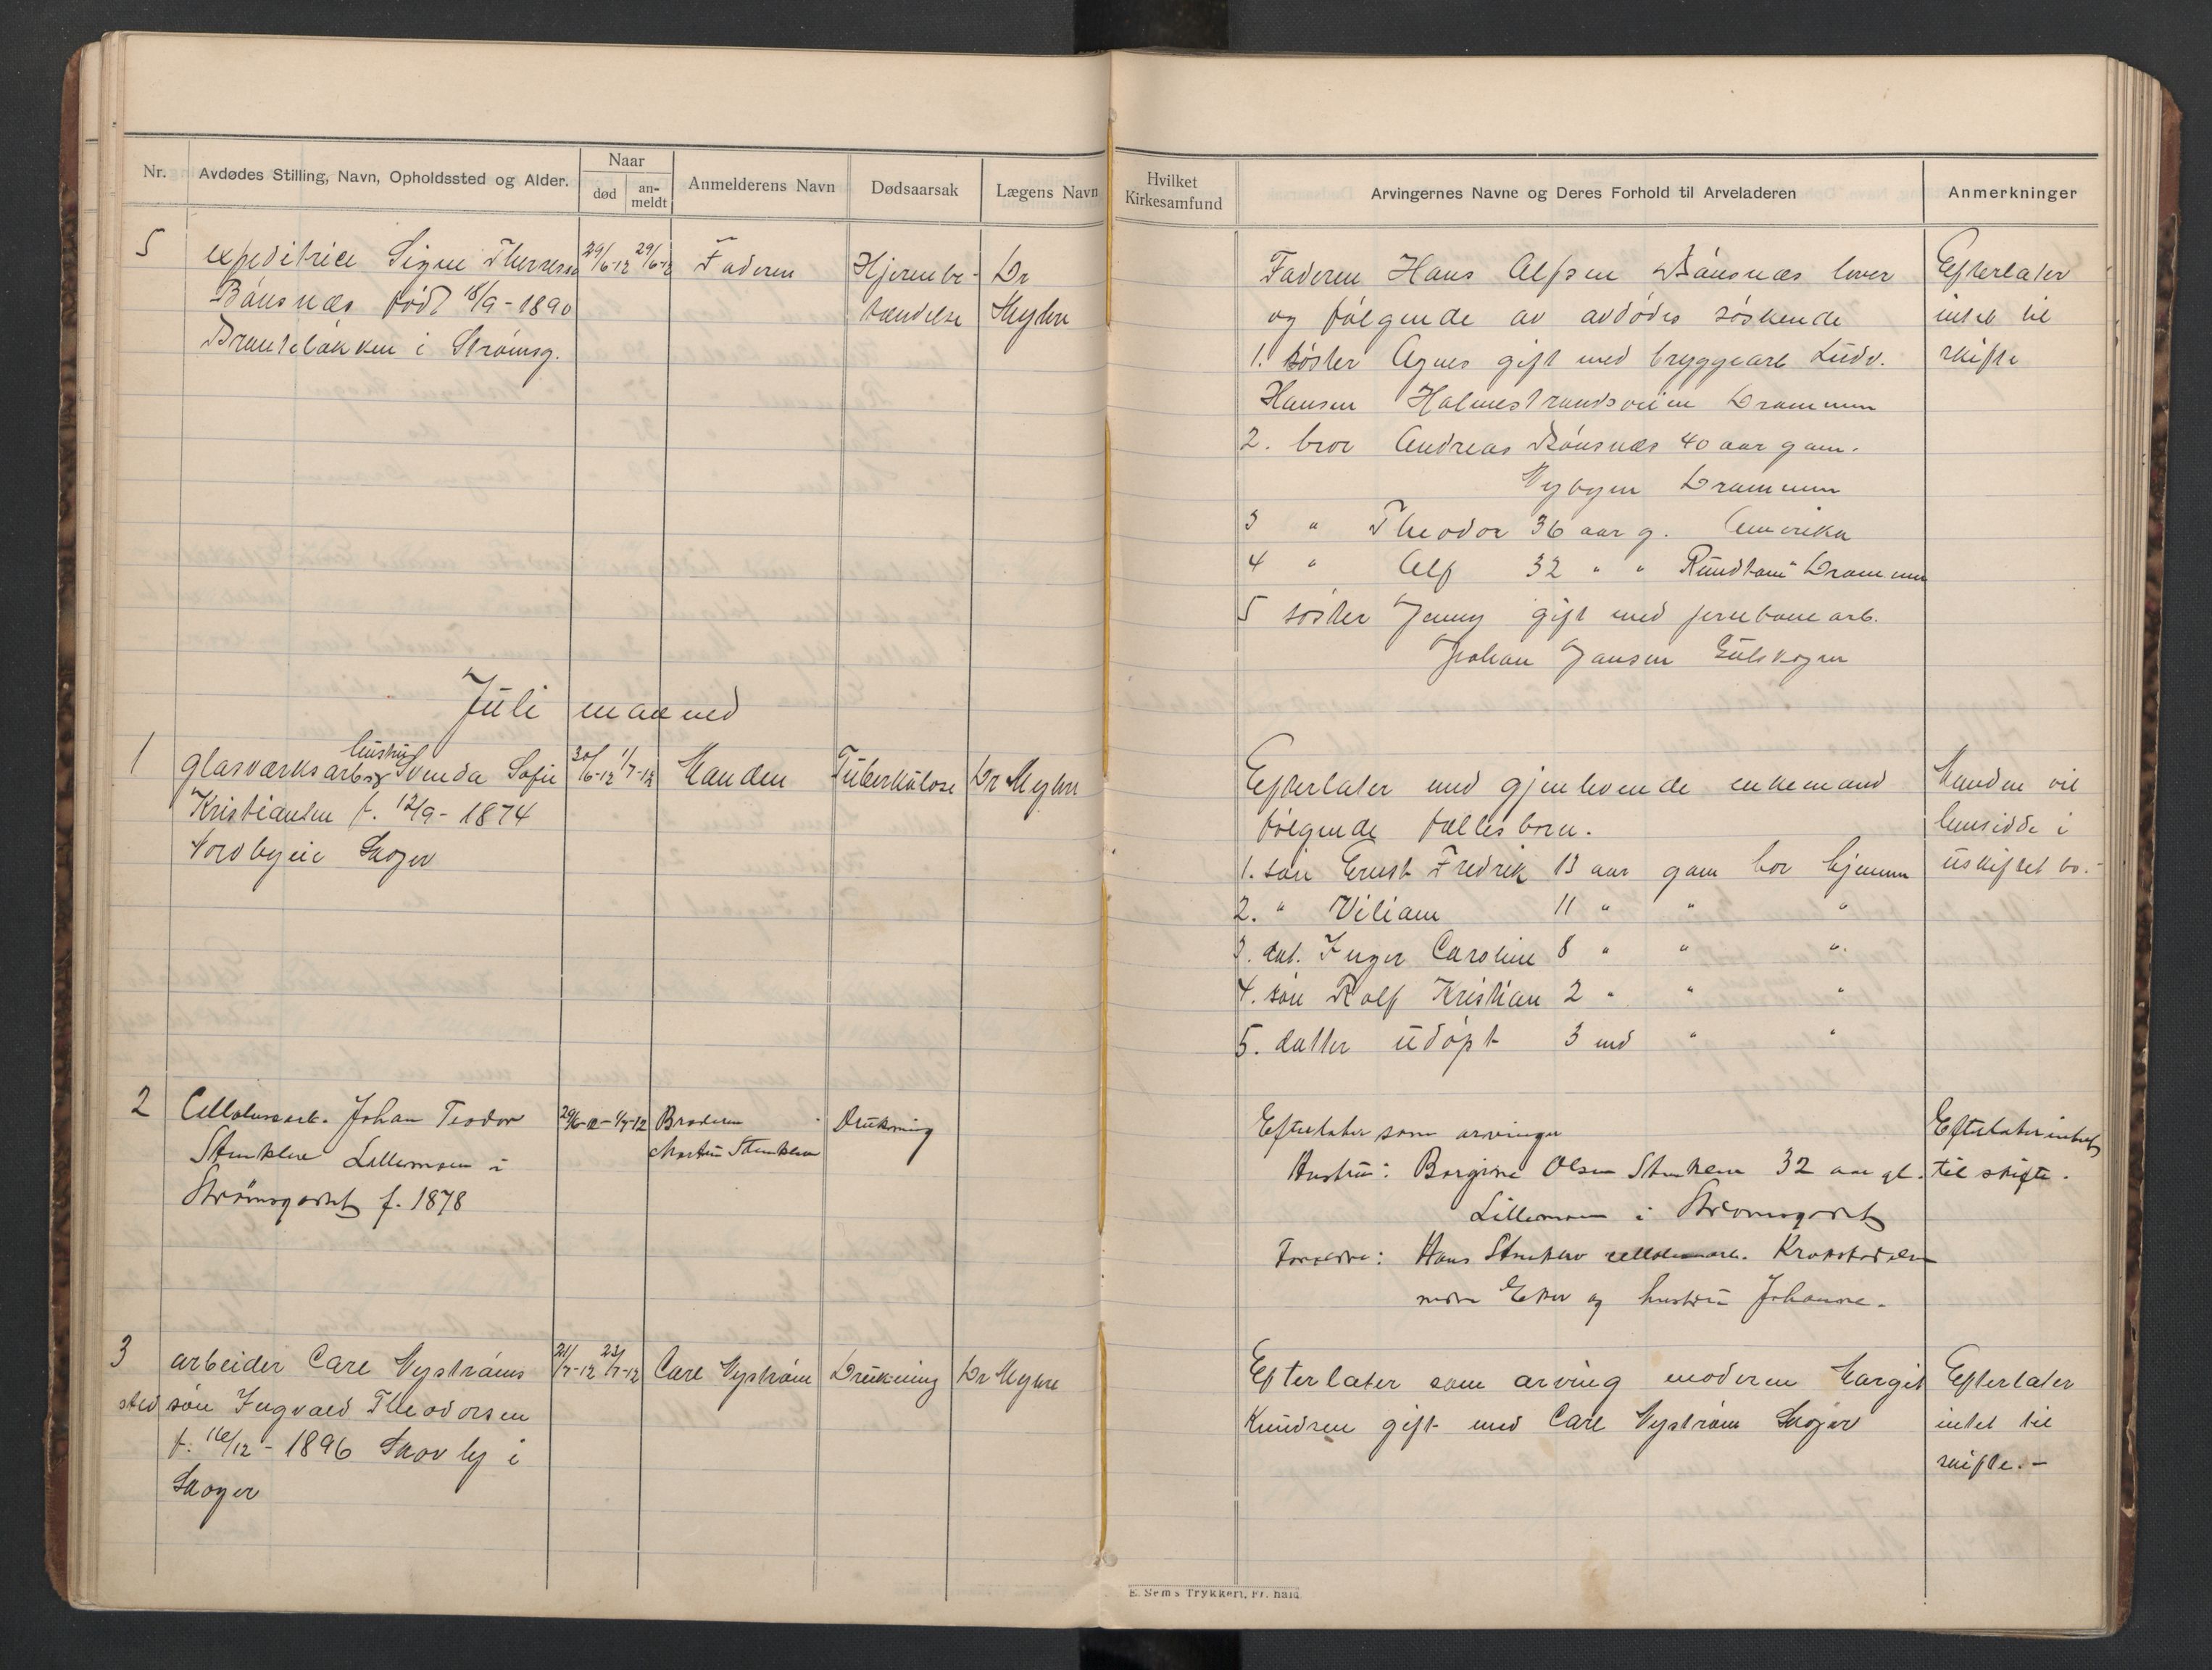 Nr.
Avdødes Stilling, Navn, Opholdssted og Alder.
Naar
død
an-
meldt
Anmelderens Navn
Dødsaarsak
Lægens Navn
Hvilket
Kirkesamfund
Arvingernes Navne og Deres Forhold til Arveladeren
Anmerkninger
5
expeditrice Signe Therese
Bånsnæs född 18/9 - 1890
i Strömsg.
29/6-12 29/6-12
Faderen
Hjernebe-
tændelse
Dr
Myhre
Faderen Hans Alfsen Bånsnæs lever
og følgende av avdødes søskende
1. søster Agnes gift med bryggearb Ludv.
Hansen Holmestrandsveien Drammen
2. bror Andreas Bånsnæs 40 aar gam.
Nybyen Drammen
3 " Theodor 36 aar g. Amerika
4 " Alf 32 " " Rundtom Drammen
5 søster Jenny gift med jernbanearb.
Johan Jansen Gulskogen
Efterlater
intet til
skifte
Juli maaned
1
hustru
glasværksarb Svenda Sofie
Kristiansen f. 12/9 - 1874
Nordbyeie Skoger
30/6-12 1/7-12
Manden
Tuberkulose
Dr Myhre
Efterlater med gjenlevende enkemand
følgende fælles børn.
1. søn Ernst Fredrik 13 aar gam bor hjemme
2. " Viliam 11 " " "
3. dat. Inger Caroline 8 " " "
4. søn Rolf Kristian 2 " " "
5. datter udöpt 3 md " "
Manden vil
hensidde i
uskiftet bo.-
2
Cellulosearb. Johan Teodor
Stenklev Lillemoen i
Strømsgodset f. 1878
29/6-12 - 1/7-12
Broderen
Martin Stenklev
Drukning
Efterlater som arvinger
Hustru: Borgine Olsen Stenklev 32 aar gl.
Lillemoen i Strømsgodset
Forældre: Hans Stenklev cellulosearb. Krokstadelven
nedre Eker og hustru Johanne.
Efterlater intet
til skifte.
3
arbeider Carl Nyströms
sted søn Ingvald Theodorsen
f. 16/12 - 1896 Skovly i
Skoger
21/7-12 23/7-12
Carl Nyström
Drukning
Dr Myhre
Efterlater som arving moderen Margit
Knudsen gift med Carl Nyström Skoger
Efterlater
intet til
skifte.-
E. Sem's Trykkeri, Fr. hald